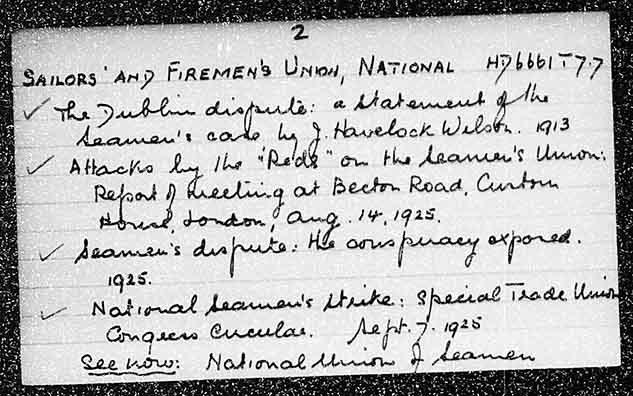 2
SAILORS' AND FIREMEN'S UNION, NATIONAL HD6661 T7.7
✓ The Dublin dispute: a statement of the
Seamen's case by J. Havelock Wilson. 1913
✓ Attacks by the "Reds" on the Seamen's Union:
Report of meeting at Becton Road, Custom
House, London, Aug. 14, 1925.
✓ Seamen's dispute: the conspiracy exposed.
1925.
✓ National Seamen's Strike: Special Trade Union
Congress Circular. Sept. 7. 1925
See now: National Union of Seamen